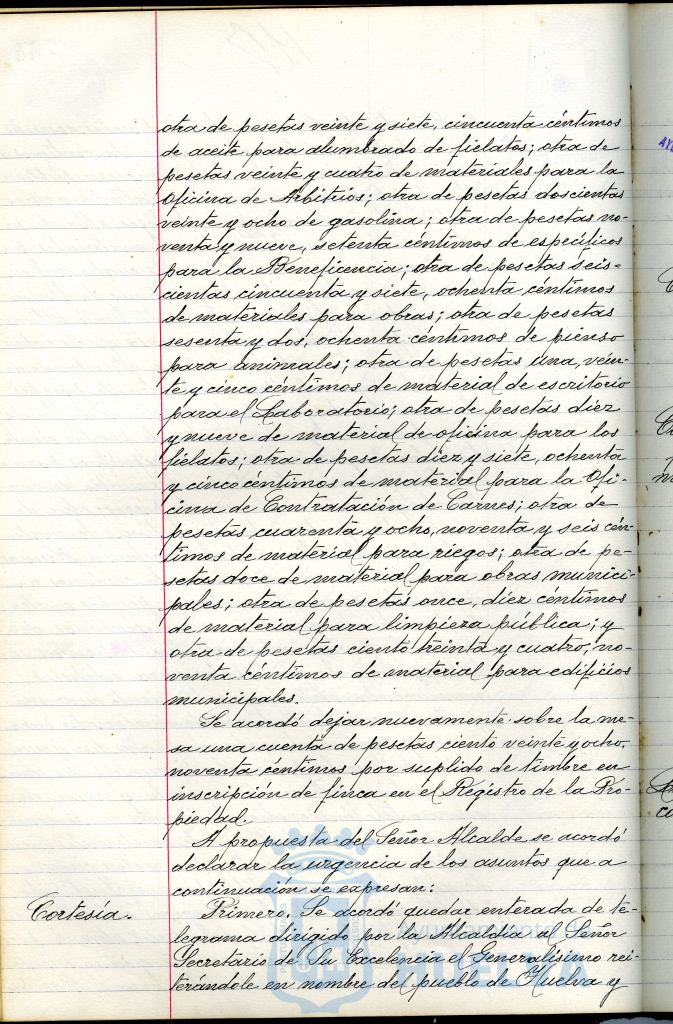 otra de pesetas veinte y siete, cincuenta céntimos
de aceite para alumbrado de fielatos; otra de
pesetas veinte y cuatro de materiales para la
Oficina de Arbitrios; otra de pesetas doscientas
veinte y ocho de gasolina; otra de pesetas no-
venta y nueve, setenta céntimos de específicos
para la Beneficencia; otra de pesetas seis-
cientas cincuenta y siete, ochenta céntimos
de materiales para obras; otra de pesetas
sesenta y dos, ochenta céntimos de pienso
para animales; otra de pesetas una, vein-
te y cinco céntimos de material de escritorio
para el Laboratorio; otra de pesetas diez
y nueve de material de oficina para los
fielatos; otra de pesetas diez y siete, ochenta
y cinco centimos de material para la Ofi-
cina de Contratación de Carnes; otra de
pesetas cuarenta y ocho, noventa y seis cén-
timos de material para riegos; otra de pe-
setas doce de material para obras munici-
pales; otra de pesetas once, diez céntimos
de material para limpieza pública; y
otra de pesetas ciento treinta y cuatro, no-
venta céntimos de material para edificios
municipales.
Se acordó dejar nuevamente sobre la me-
sa una cuenta de pesetas ciento veinte y ocho,
noventa céntimos por suplido de timbre en
inscripción de finca en el Registro de la Pro-
piedad.
A propuesta del Señor Alcalde se acordó
declarar la urgencia de los asuntos que a
continuación se expresan:
Cortesía.
Primero. Se acordó quedar enterada de te-
legrama dirigido por la Alcaldía al Señor
Secretario de Su Excelencia el Generalísimo rei-
terándole en nombre del pueblo de Huelva y